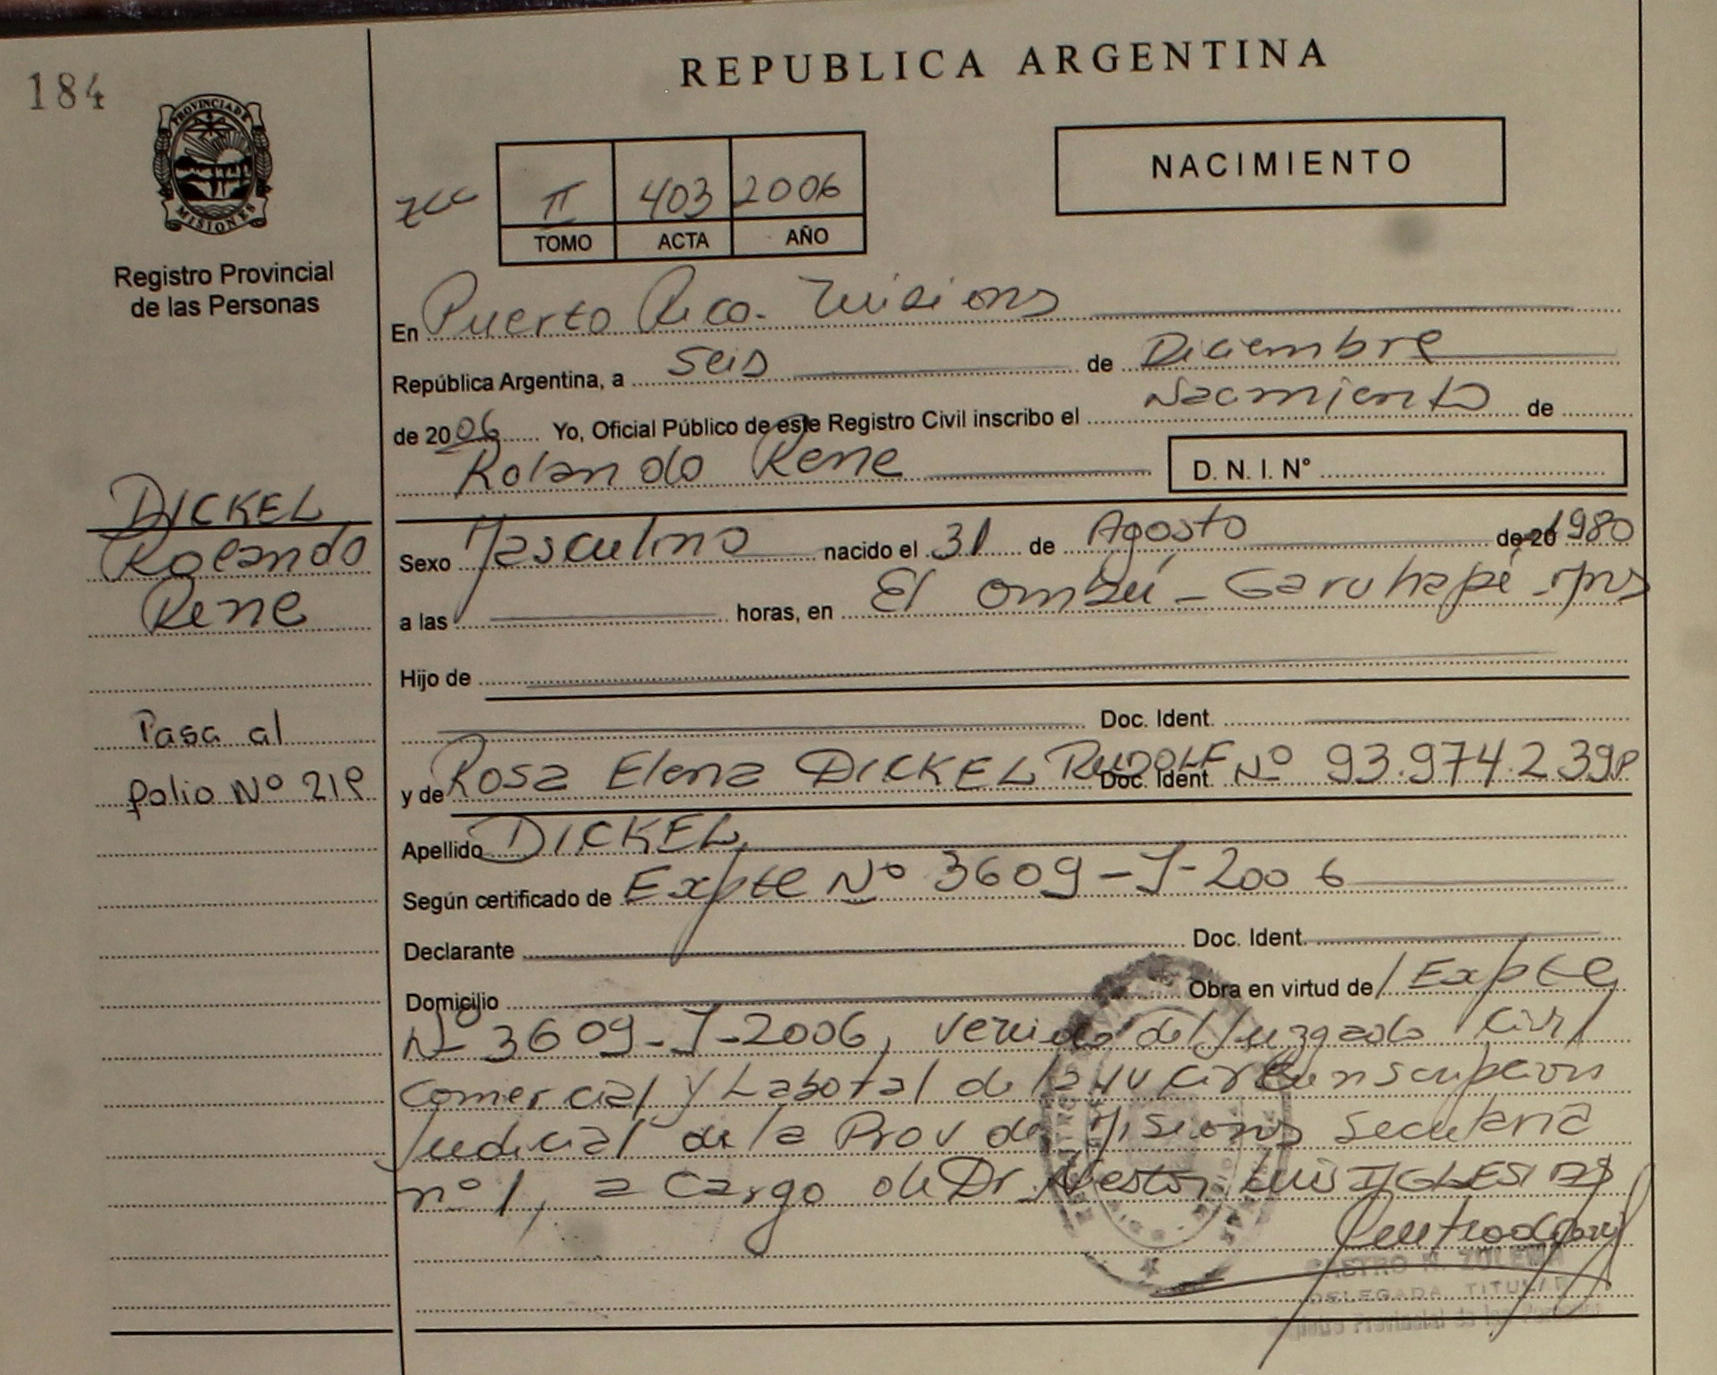 184
PROVINCIA DE
MISIONES
Registro Provincial
de las Personas
REPUBLICA ARGENTINA
II 403 2006
TOMO ACTA AÑO
NACIMIENTO
En Puerto Rico. Misiones
República Argentina, a seis de Diciembre
de 2006 Yo, Oficial Público de este Registro Civil inscribo el Nacimiento de
Rolando Rene
D. N. I. N°
DICKEL
Rolando
Rene
Sexo Masculino nacido el 31 de Agosto de 20 1980
a las horas, en El Ombú - Garuhapé Mns
Hijo de
Doc. Ident.
Pasa al
folio Nº 219
y de Rosa Elena DICKEL RUDOLF Doc. Ident. Nº 93.974.239
Apellido DICKEL
Según certificado de Expte Nº 3609-J-2006
Declarante Doc. Ident.
Domicilio Obra en virtud de / Expte
Nº 3609-J-2006, venido del Juzgado Civil
Comercial y Laboral de la IV Circunscripcion
Judicial de la Prov de Misiones Secretaria
nº 1, a cargo de Dr. Nestor Luis IGLESIAS
CASTRO M. ZULEMA
DELEGADA TITULAR
Registro Provincial de las Personas